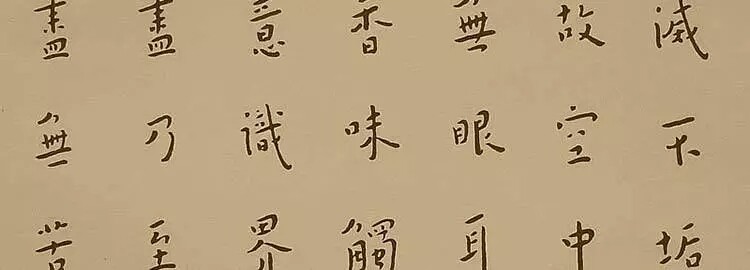 滅不垢
故空中
無眼耳
香味觸
意識界
盡乃至
盡無苦